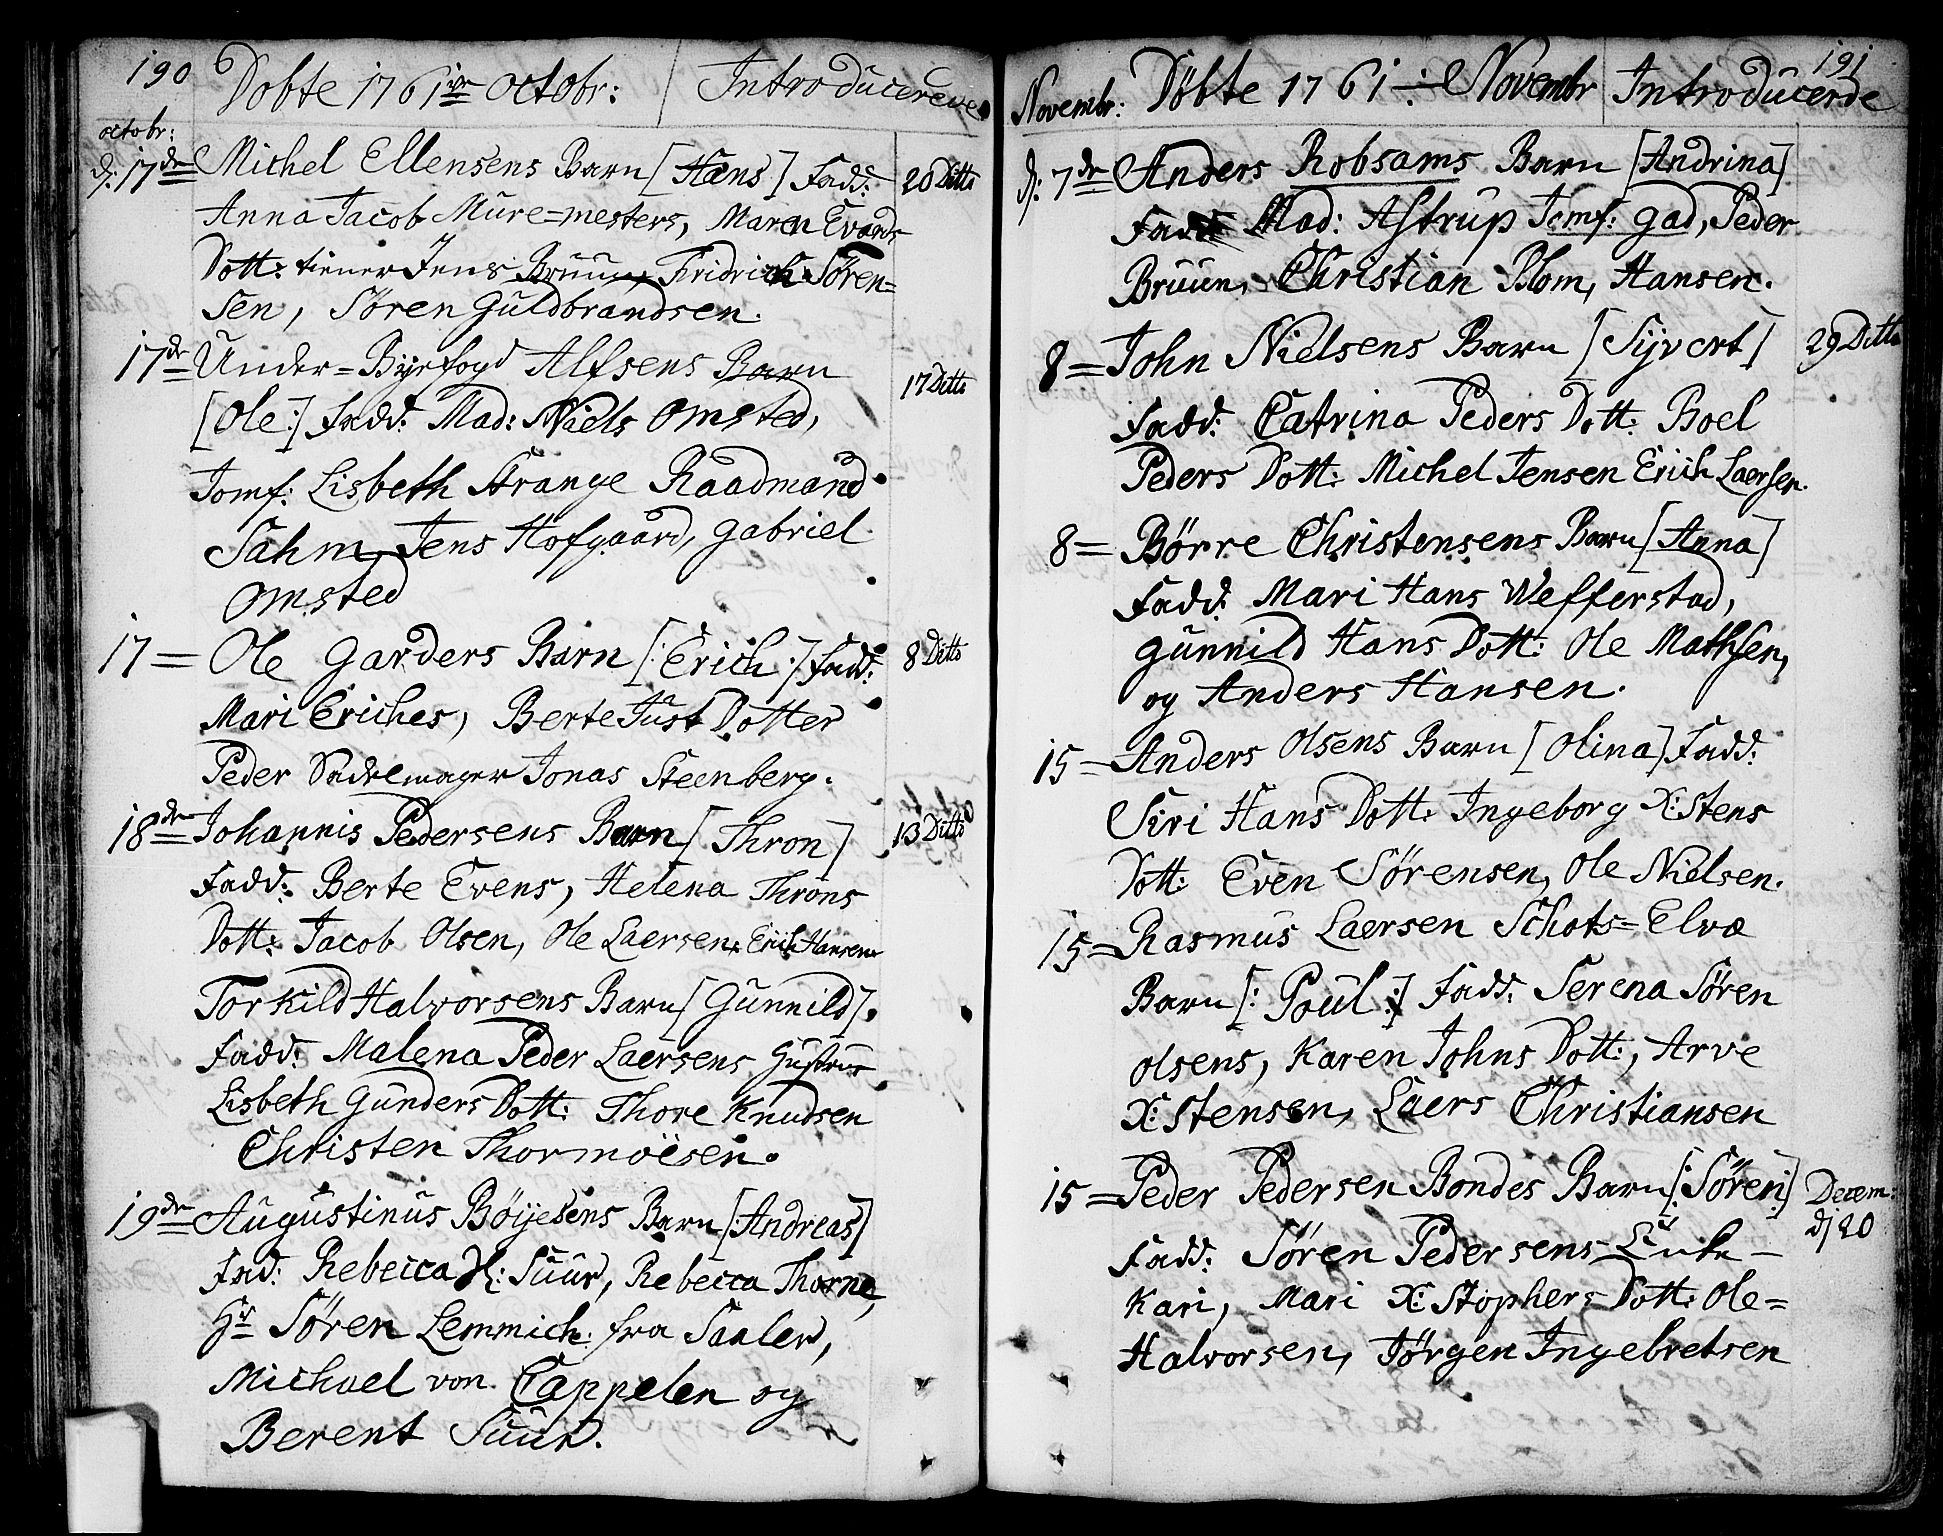 190
Dobte 1761 octobr: Introducerede
octobr:
d: 17de Michel Ellensens Barn [Hans] Fadd: 20 Ditto
Anna Jacob Mure=mesters, Maren Evards
Dott: tiener Jens Bruun, Fridrich Sören=
sen, Sören Guldbrandsen.
17de Under=Byefogd Alfsens Barn 17 Ditto
[Ole:] Fadd: Mad: Niels Omsted,
Jomf: Lisbeth Strange Raadmand
Sahm, Jens Hofgaard, Gabriel
Omsted
17= Ole Garders Barn [:Erich:] Fadd: 8 Ditto
Mari Eriches, Berte Just Dotter
Peder Sadelmager Jonas Steenberg.
18de Johannis Pedersens Barn [Thron] 13 Ditto
Fadd: Berte Evens, Helena Throns
Dott: Jacob Olsen, Ole Laersen, Erich Hansen
Torkild Halvorsens Barn [Gunnild].
Fadd: Malena Peder Laersens Hustrue
Lisbeth Gunders Dott: Thore Knudsen
Christen Thormoesen.
19de Augustinus Böyesens Barn [:Andreas]
Fad: Rebecca H: Suur, Rebecca Thorne,
Hr Sören Lemmich: fra Sauler,
Michael von Cappelen og
Berent Suur.
191
Novembr: Döbte 1761 ÷ Novembr Introducerde
d: 7de Anders Robsams Barn [Andrina]
Fadd Mad: Astrup Jomf: Gad, Peder
Bruun, Christian Blom, Hansen.
8= John Nielsens Barn [Syvert] 29 Ditto
Fadd: Catrina Peders Dott: Boel
Peders Dott: Michel Jensen Erich Laersen.
8= Börre Christensens Barn [Anna]
Fadd: Mari Hans Wefferstad,
Gunnild Hans Dott: Ole Mathsen,
og Anders Hansen.
15= Anders Olsens Barn [Olina] Fadd:
Siri Hans Dott: Ingeborg X:stens
Dott: Even Sörensen, Ole Nielsen.
15= Rasmus Laersen Schots=Elvæ
Barn [: Poul :] Fadd: Serena Sören
Olsens, Karen Johns Dott:, Arve
X:stensen, Laers Christiansen
15= Peder Pedersen Bondes Barn [:Sören] Decem:
d: 20
Fadd: Sören Pedersens Enke
Kari, Mari X:stophers Dott: Ole=
Halvorsen, Jörgen Ingebretsen